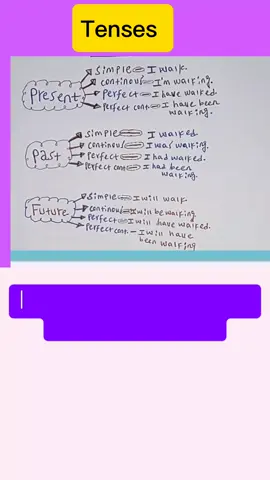 Tenses
Present
Simple I walk.
continous I'm walking.
Perfect I have walked.
Perfect cont. I have been
walking.
Past
Simple I walked.
continous I was walking.
Perfect I had walked.
Perfect cont I had been
walking.
Future
Simple I will walk
continous I will be walking
Perfect I will have walked.
Perfect cont. I will have
been walking